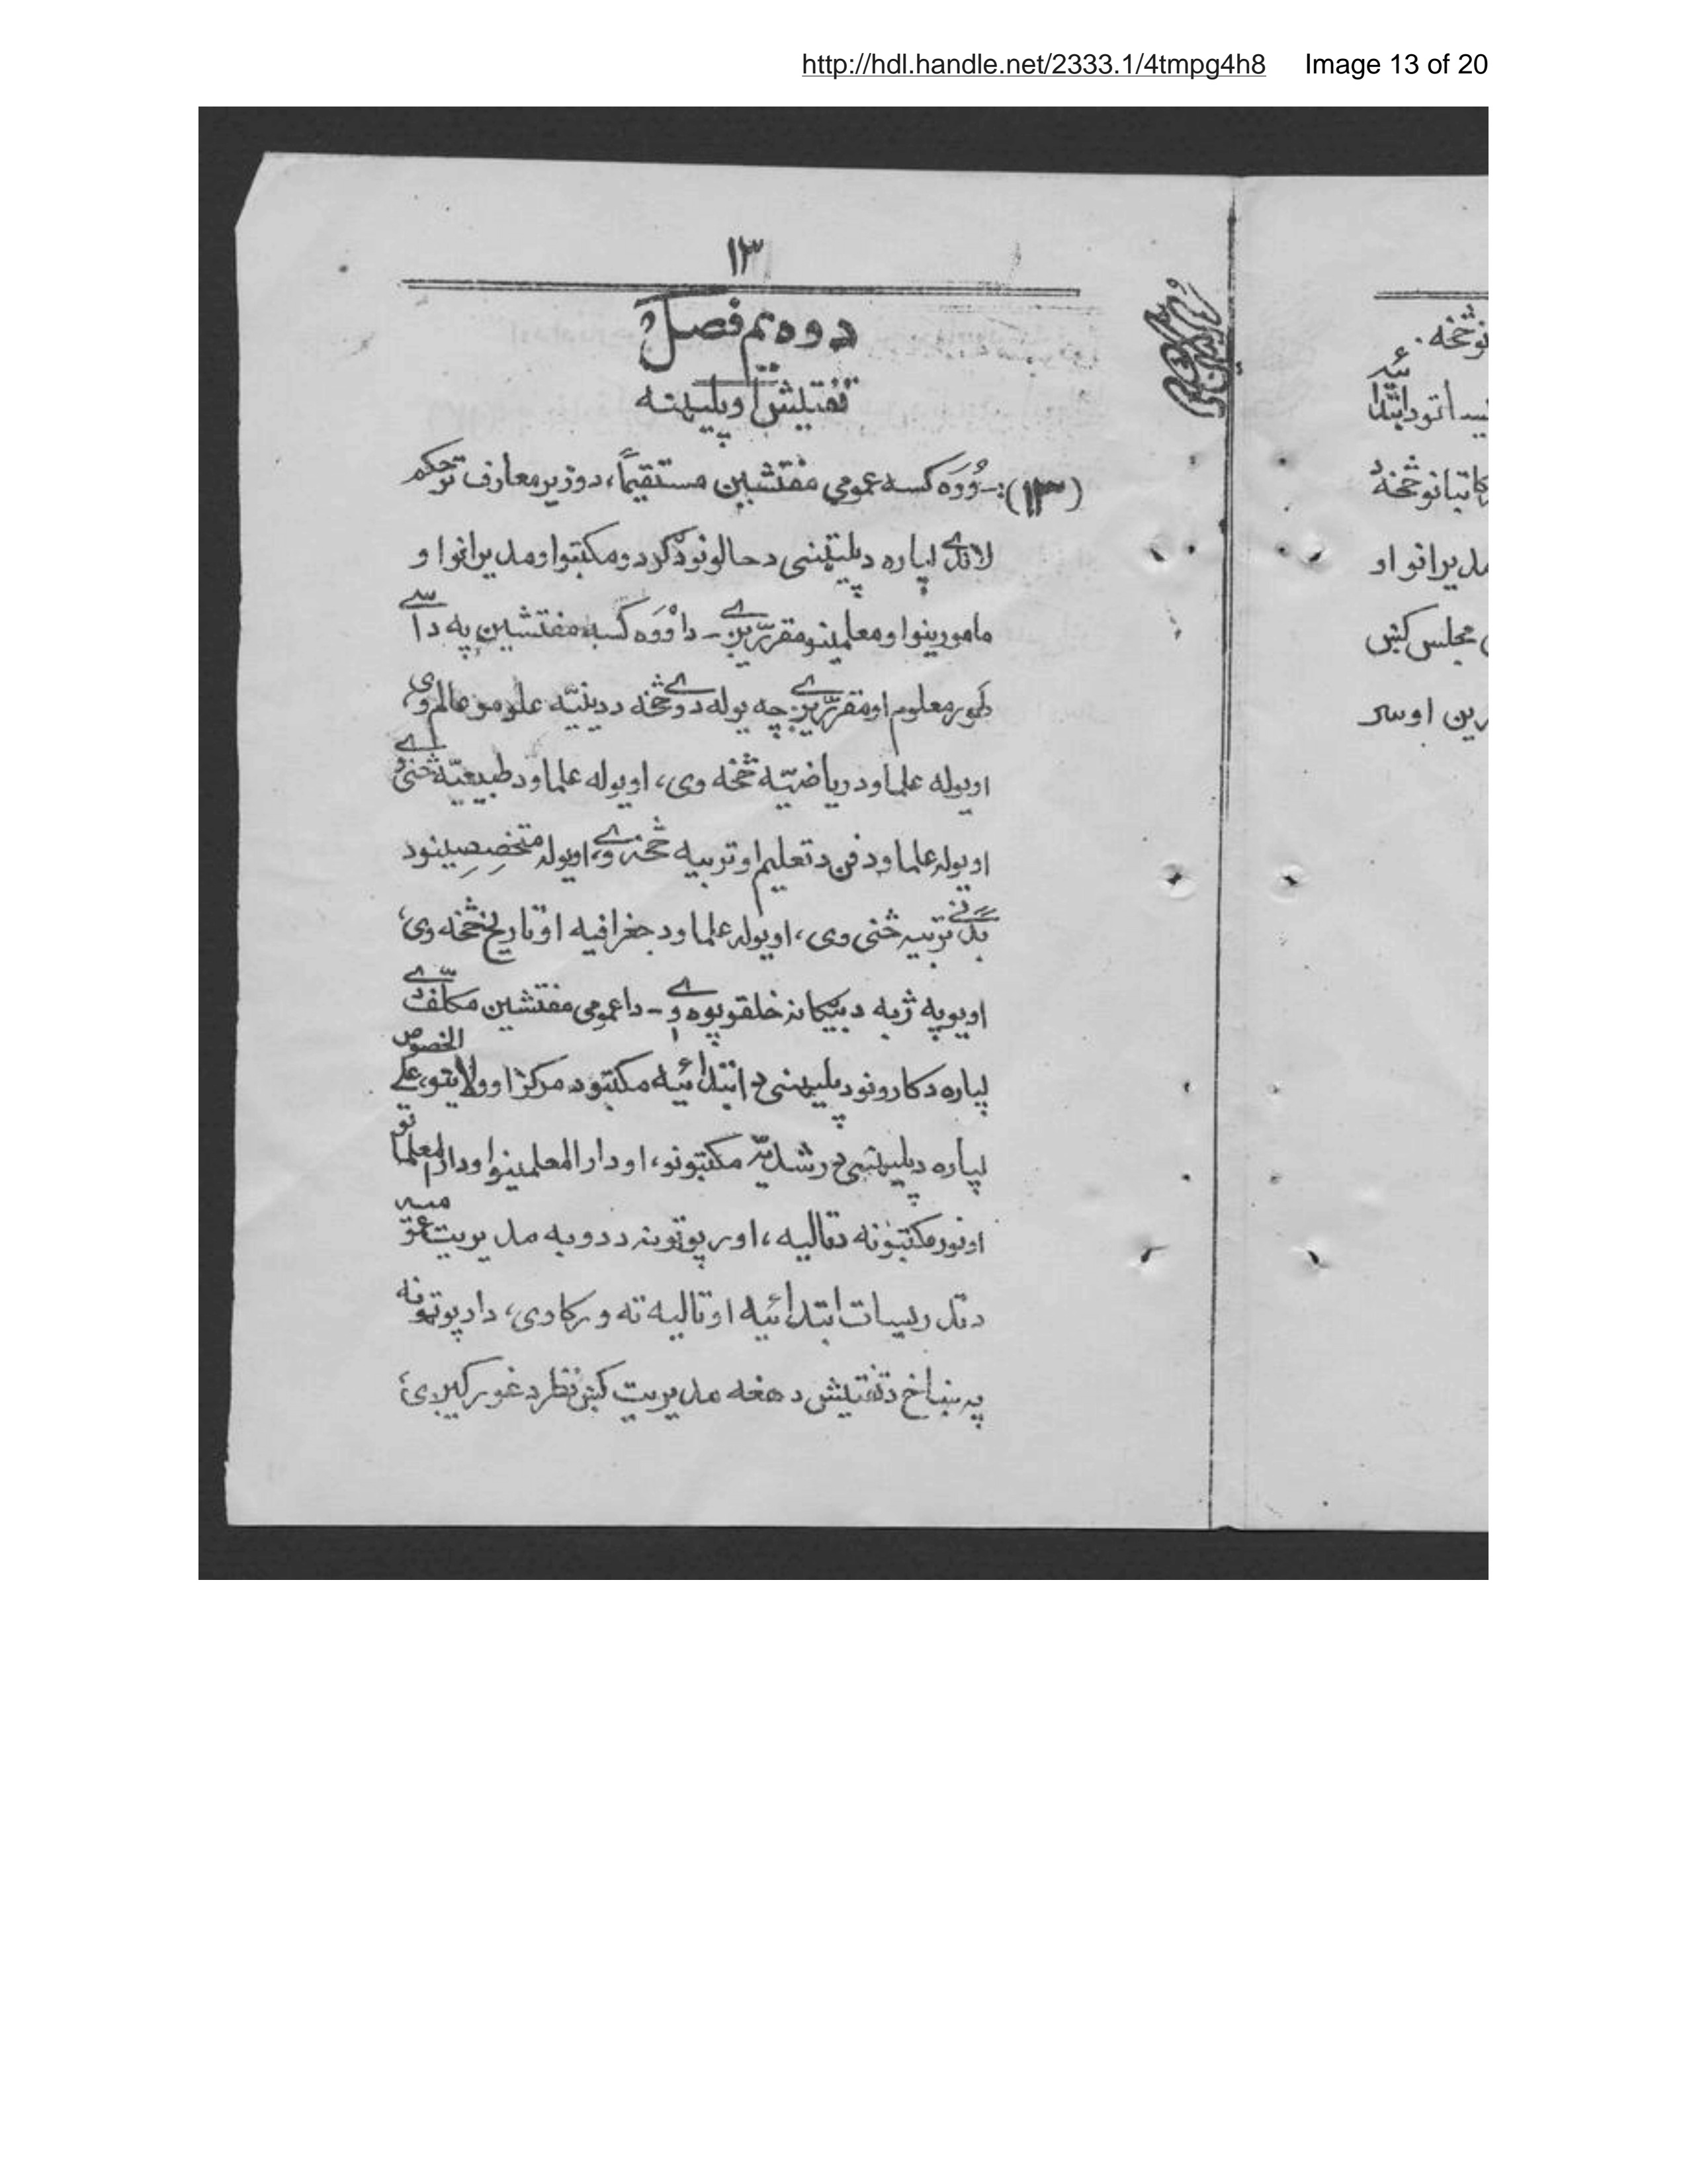 http://hdl.handle.net/2333.1/4tmpg4h8 Image 13 of 20
۱۳
دوه یم فصل
تفتیش او پلیټنه
(۱۳):- وُوَه کسه عمومي مفتشین مستقیماً، د وزیر معارف تر حکم
لاندے لپاره د پلیټنی د حالونو د کردو مکتبوا و مدیرانوا و
مامورینوا و معلمینو مقررّیږے - دا وُوَه کسه مفتشین په دا سے
طور معلوم او مقررّیږے چه یو له دوے څخه د دینیّه علومو عالم وی
او یو له علماو د ریاضیّه څخه وی، او یو له علماو د طبیعیّه څنی وے
او یو له علماو د فن د تعلیم او تربیه څخه وے، او یو له متخصِصِینو د
بدنی تربیه څنی وی، او یو له علماو د جغرافیه او تاریخ څخه وی،
او یو په ژبه د بیګانه خلقو پوه وے - دا عمومی مفتشین مکلّف دے
لپاره د کارونو د پلیټنی د ابتدائیه مکتبو د مرکز او ولایتو، علے الخصوص
لپاره د پلیټنی د رشدیّه مکتبونو، او دار المعلمینوا و دار المعلماتو
او نور مکتبونه د تالیه، او رپوټونه د دو به مدیریت عمومیه
د تدریسات ابتدائیه او تالیه ته ورکاوی، دا رپوټونه
په ښاخ د تفتیش د هغه مدیریت کښ نظر د غور کیږی،
نو څخه.
کاتبانو څخه د
مدیرانو او
مجلس کښ
رین او سر